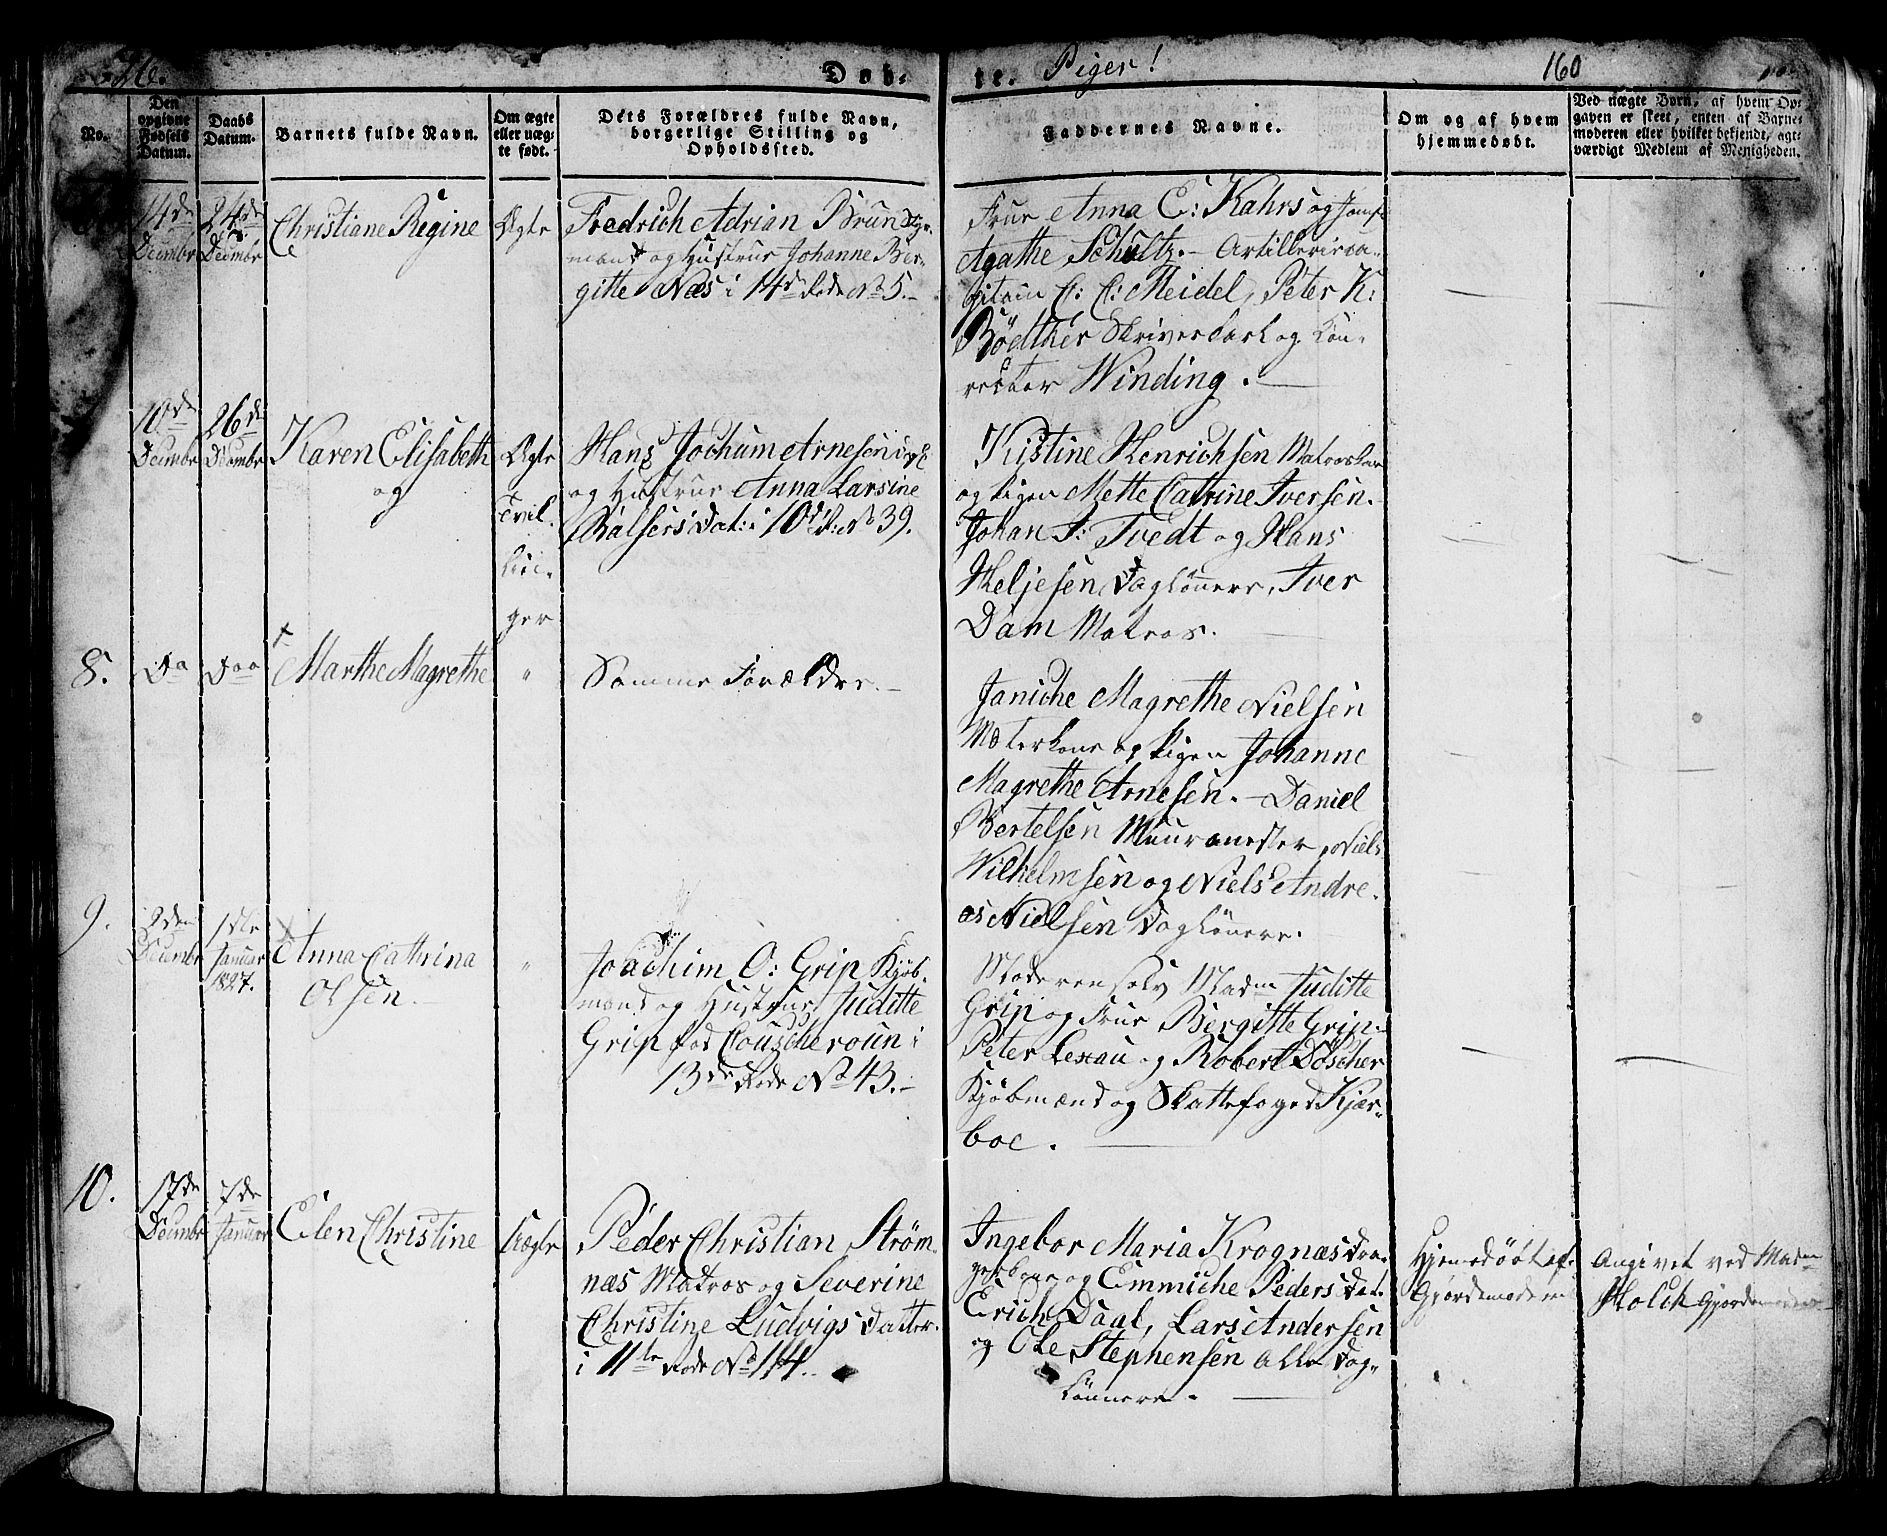 Døb-
te. Piger!
160
No.
Den opgivne Fødsels Datum.
Daabs Datum.
Barnets fulde Navn.
Om ægte eller uægte født.
Dets Forældres fulde Navn, borgerlige Stilling og Opholdssted.
Faddernes Navne.
Om og af hvem hjemmedøbt.
Ved uægte Børn, af hvem Opgaven er skeet, enten af Barnemoderen eller hvilket bekjendt, agtværdigt Medlem af Menigheden.
14de Decembr
24de Decembr
Christiane Regine
Ægte
Fredrich Adrian Brun
mand og Hustrue Johanne Ber-
gitte Næs i 14de Rode No 5.-
Frue Anna C: Kahrs og Jomf:
Agathe Schultz.- Artillerieca-
pitain C: C: Meidel, Peter K:
Bödtker Skriverkarl og Con-
rector Winding.
10de Decembr
26de Decembr
Karen Elisabeth
og
Ægte
Tvil-
lin-
ger
Hans Jochum Arnesen
og Hustrue Anna Larsine
Balsersdat: i 10de R. No 39.
Kistine Henrichsen Matroskone
og Pigen Mette Catrine Iversen.
Johan J: Tvedt og Hans
Heljesen Daglönnere, Iver
Dam Matros.
8.
Do
Do
† Marthe Magrethe
"
Samme Forældre.-
Janiche Magrethe Nielsen
Kone og Pigen Johanne
Magrethe Arnesen.- Daniel
Bertelsen Muurmester, Niels
Wilhelmsen og Niels Andre-
as Nielsen Daglönnere.
9.
2den Decembr
1ste Januar 1827.
Anna Cathrina
Olsen.
"
Joachim O: Grip Kjöb-
mand og Hustrue Juditte
Grip fød Coucheroun i
13de Rode No 43.-
Moderen selv Madm Juditte
Grip og Frue Bergitte Grip.
Peter Lexau og Robert Döscher
Kjöbmænd og Skattefoged Kjær-
boe.
10.
17de Decembr
7de Januar
Elen Christine
Uægte
Peder Christian Ström-
næs Matros og Severine
Christine Ludvigs Datter.
i 11te Rode No 114.
Ingebor Maria Krognæs
og Emmiche Pedersdat:
Erich Daal, Lars Andersen
og Ole Stephensen alle Dag-
lönnere.
Hjemedöbt af
Gjordemoderen
Angivet ved Madm
Holck Gjordemoder